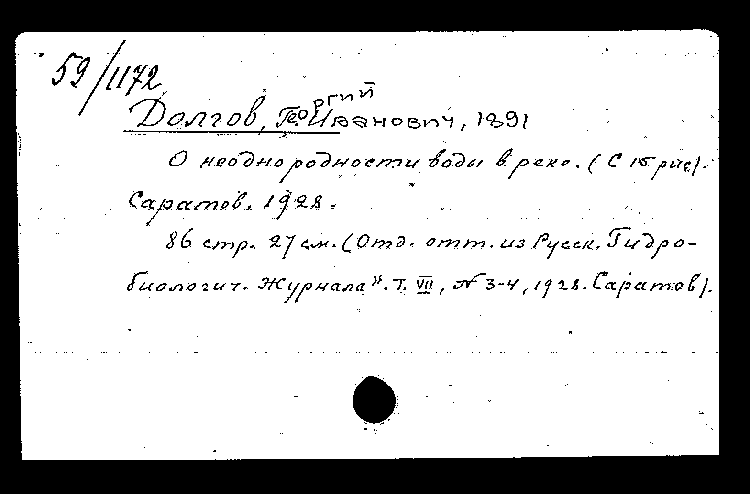 59/1172
Долгов, Георгий Иванович, 1891
О неоднородности воды в реке. (С 15 рис).
Саратов. 1928.
86 стр. 27 см. (Отд. отт. из Русск. Гидро-
биологич. Журнала". Т. VII, № 3-4, 1928. Саратов).